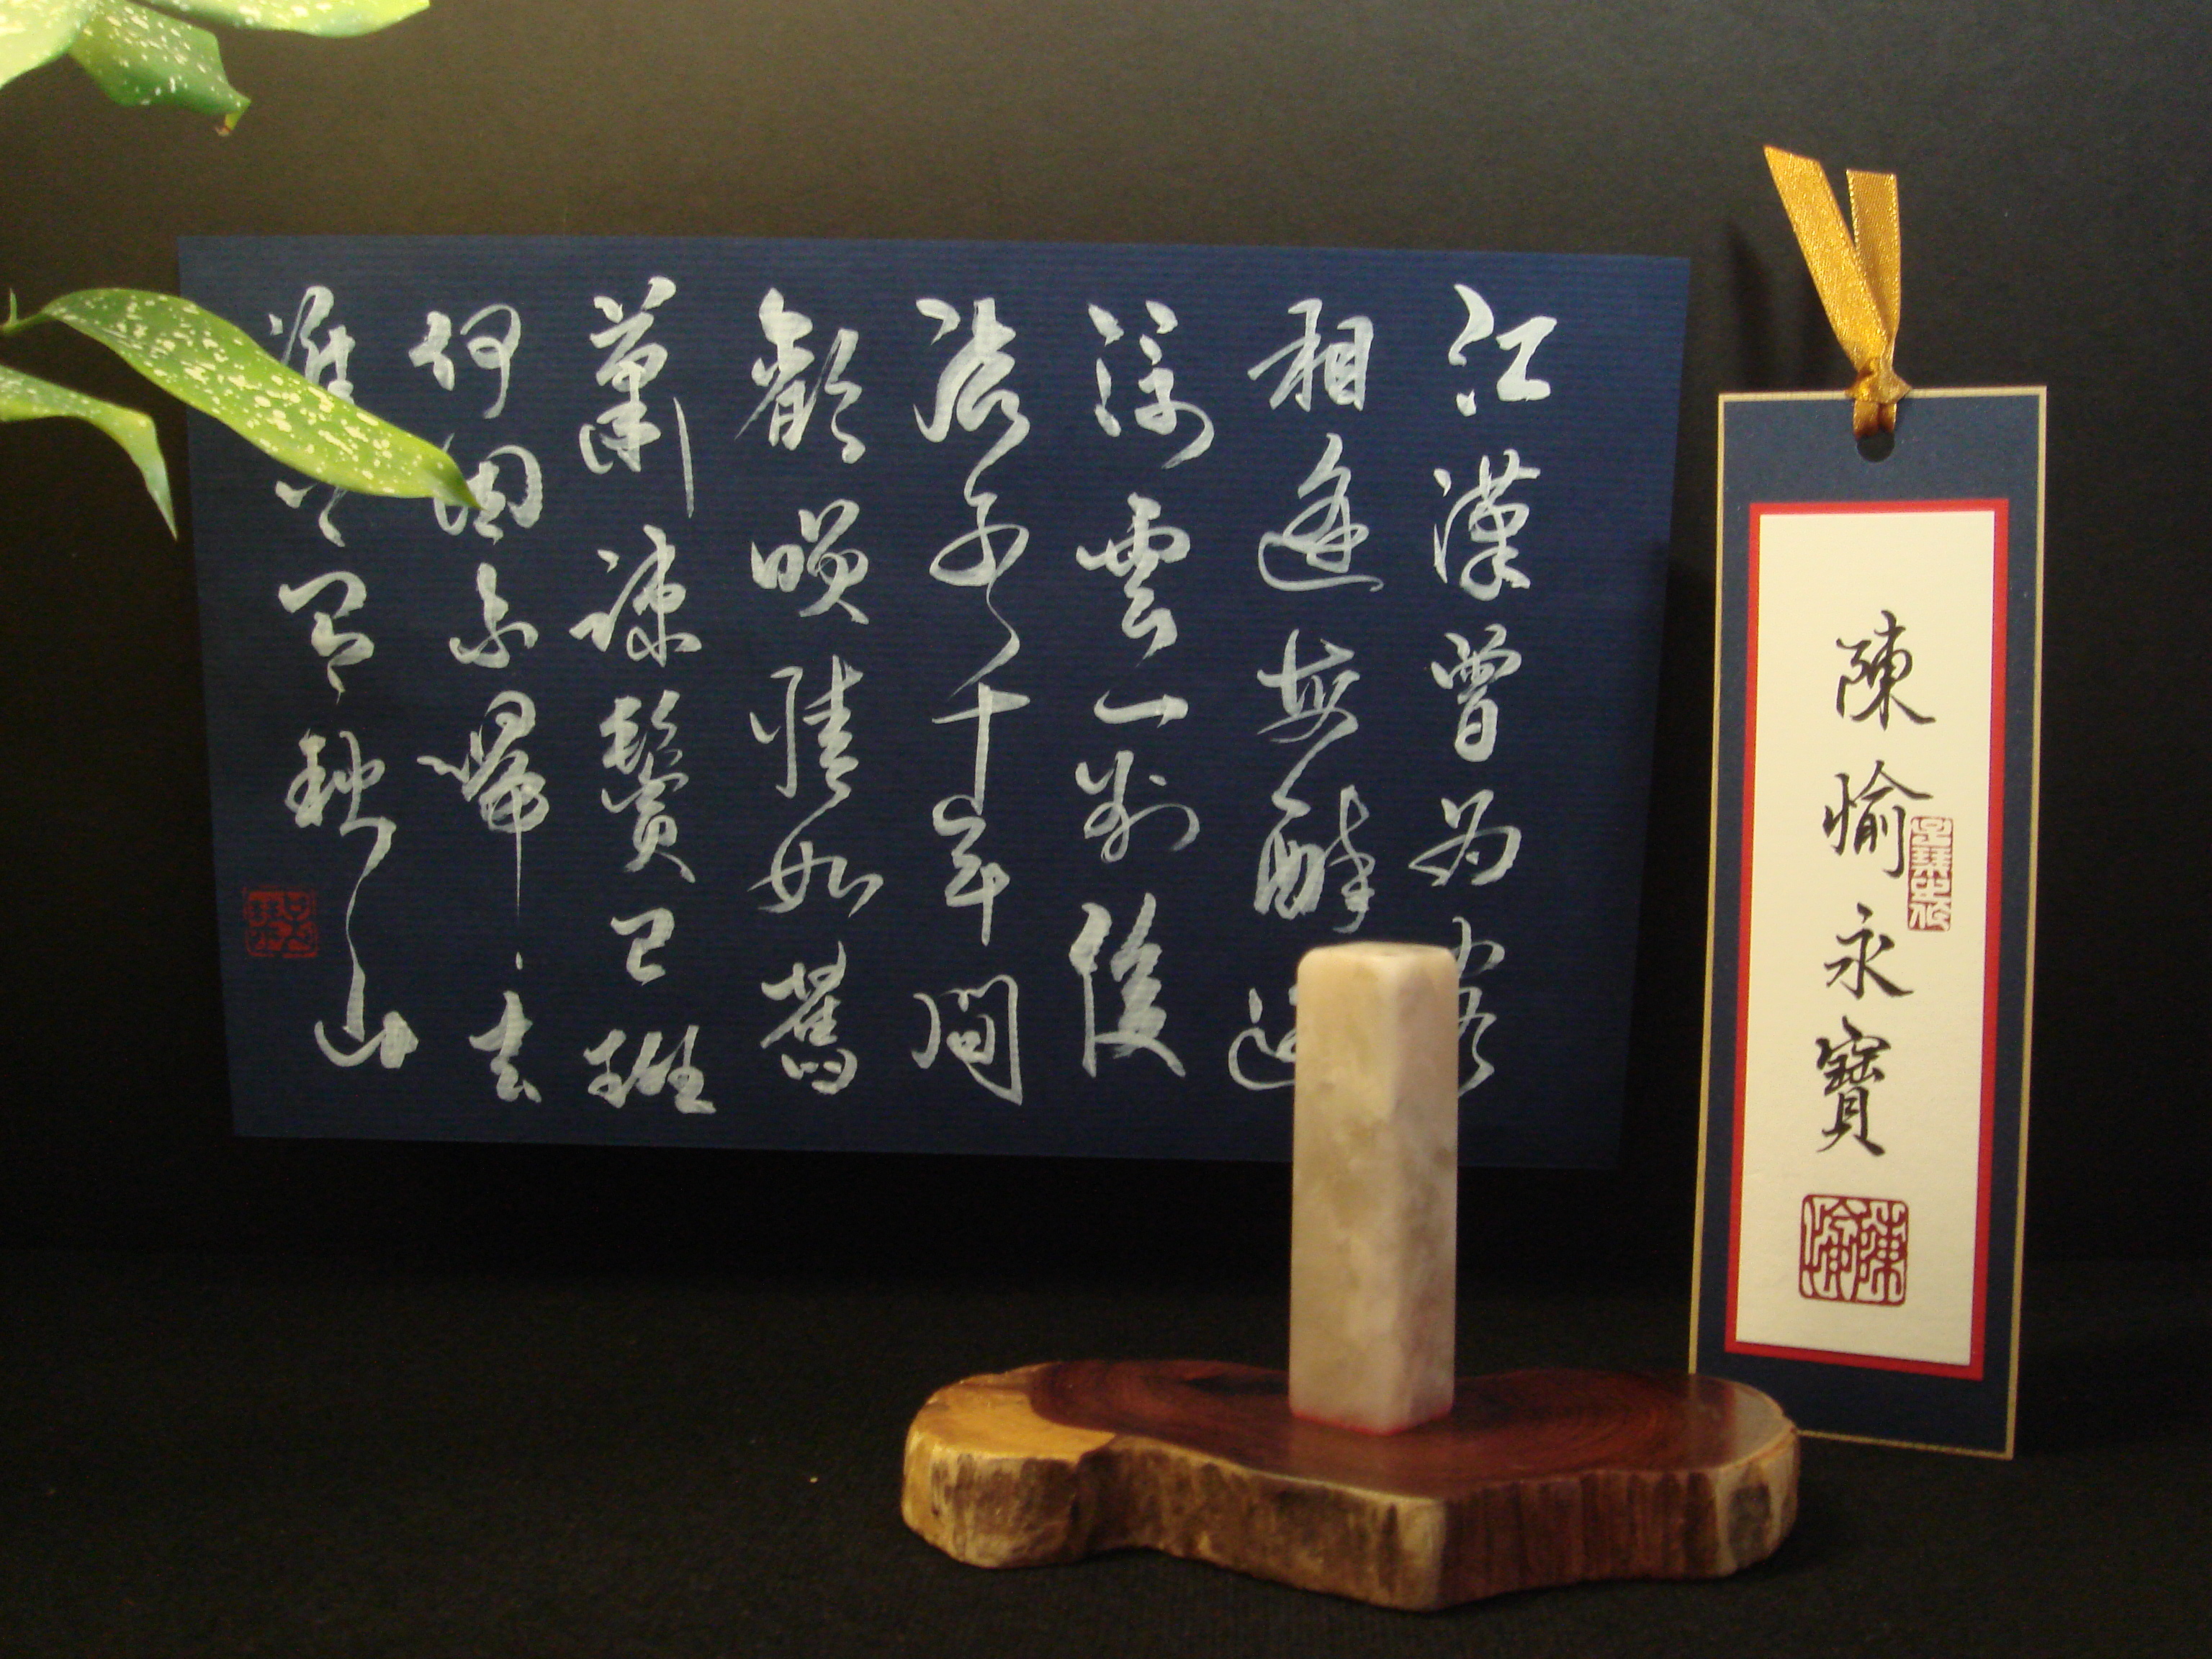 江漢曾為客
相逢每醉還
浮雲一別後
流水十年間
歡笑情如舊
蕭疎鬢已斑
何因不歸去
淮上有秋山
陳愉永寶
陳愉